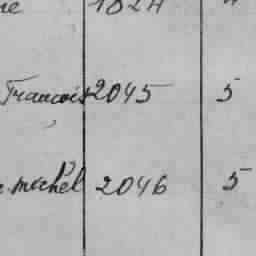 1824
François 2045 5
michel 2046 5